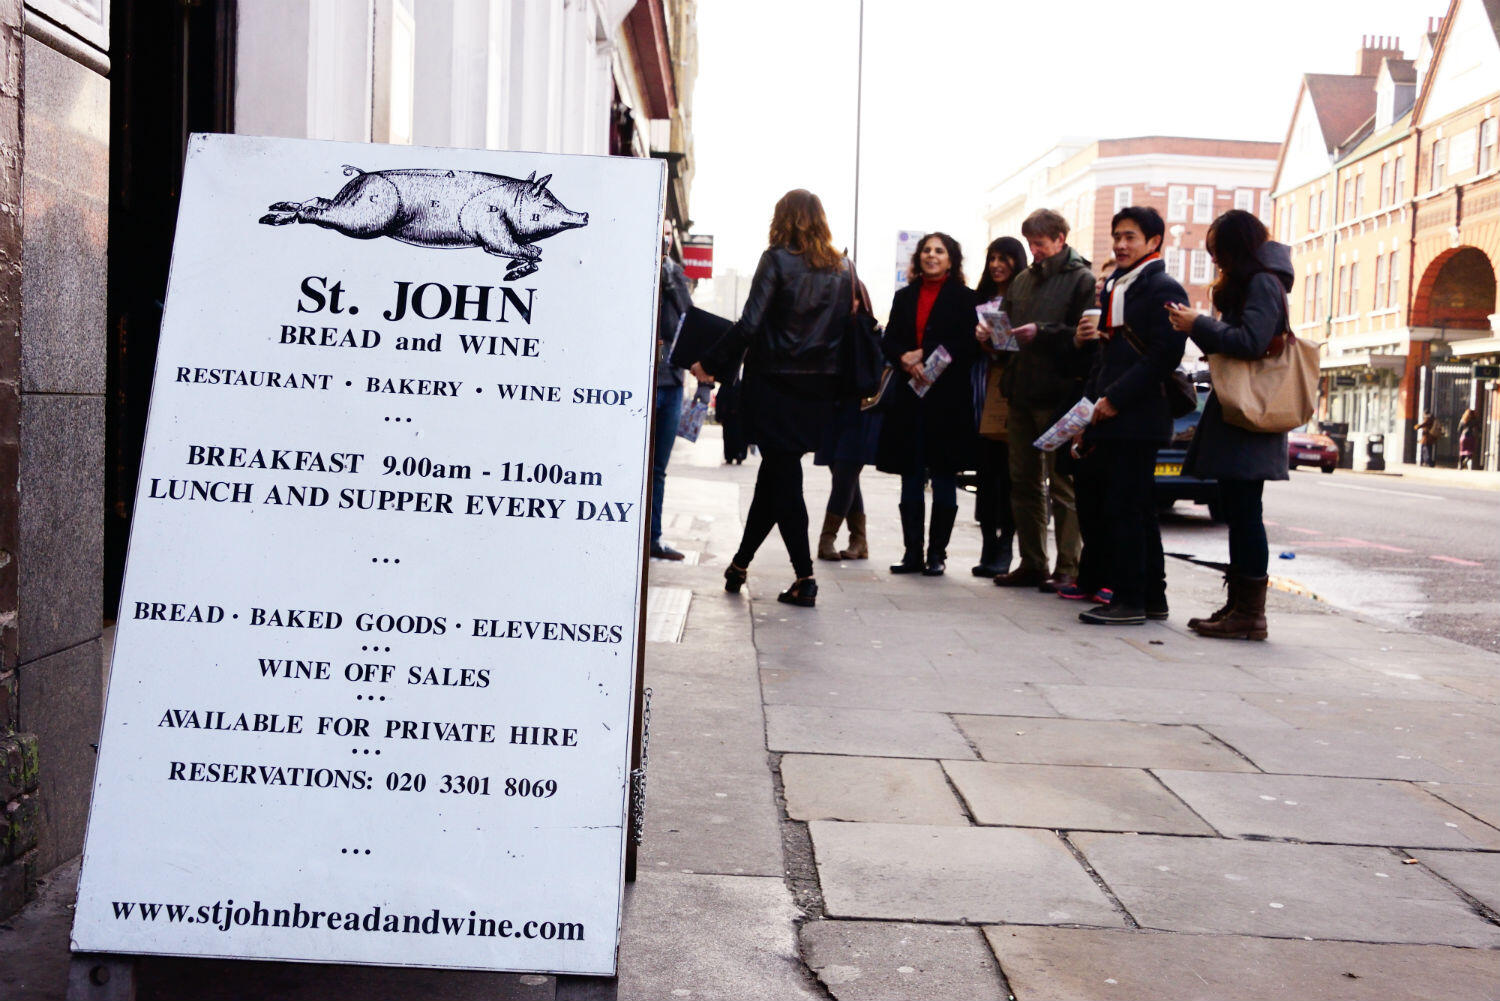 C E D B
St. JOHN
BREAD and WINE
RESTAURANT · BAKERY · WINE SHOP
...
BREAKFAST 9.00am - 11.00am
LUNCH AND SUPPER EVERY DAY
...
BREAD · BAKED GOODS · ELEVENSES
...
WINE OFF SALES
...
AVAILABLE FOR PRIVATE HIRE
...
RESERVATIONS: 020 3301 8069
...
www.stjohnbreadandwine.com